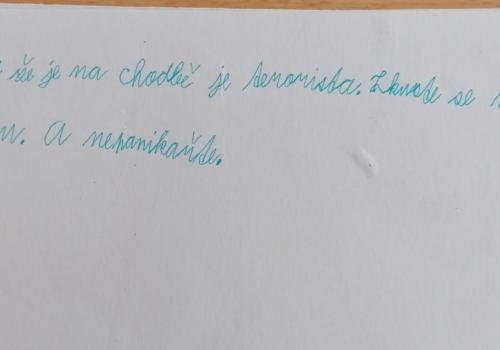 že je na chodbě je terorista. Zkuste se
A nepanikařte.